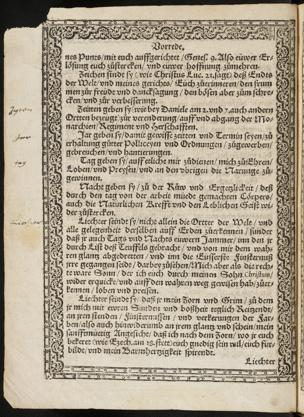 Vorrede.
nes Punts/ mit euch auffgerichtet/ Genes. 9. Also euwer Er-
lösung euch zustercken/ und euwer hoffnung zumehren.
Zeichen sindt sy (wie Christus Luc. 21. sagt) deß Endts
der Welt/ und meines gerichts/ Euch zuerinnern/ den from-
men zur freüde und dancksagung/ den bösen aber zum schre-
cken/ und zur verbesserung.
Zeitten geben sy (wie bey Daniele am 2. und 7. auch andern
Ortten bezeugt) zur veren­derung/ auff und abgang der Mo-
narchien/ Regiment und Herschafften.
Jar geben sy/ damit gewisse zeitten und Termin seyen/ zu
erhaltung gutter Policeyen und Ordnungen/ zugewerben/
gebreuchen/ und hantierungen.
Tag geben sy/ auff etliche mir zudienen/ mich zuEhren/
Loben/ und Preysen/ und an den übrigen die Narunge zu-
gewinnen.
Nacht geben sy/ zu der Rüwe und Ergetzlickeit/ deß
durch den tag von der arbeit müede gemachten Cörpers/
auch die Natürlichen Krefft und den Leblichen Geist wi-
der zustercken.
Liechter seindt sy/ nicht allein die Ortter der Welt/ und
alle gelegenheit derselben auff Erden zuerkennen/ sonder
daß je auch Tags und Nachts euwern Jammer/ inn den je
durch List deß Teuffils gebracht/ und von mir dem wah-
ren glantz abgedretten/ und inn die Eüsserste Finsternuß
jere gegangen seidt/ darbey zusehen/ Mich aber als die rech-
te ware Sonn/ der ich euch durch meinen Sohn Christum/
wider erquickt/ und auff den wahren weg gewisen hab/ zuer-
kennen/ loben und preisen.
Liechter seindt sy/ daß je mein Zorn und Grim/ zu dem
je mich mit euren Sünden und boßheit teglich Reitzendt/
an jem stenden/ Finsternussen/ und verkerungen der Far-
ben/ also auch hinwiderumb an jrem glantz und schein/ mein
sanfftmüetig Angesicht/ daß ich nach dem Zorn/ wo je euch
bekeret (wie Ezech. am 18. stett) euch gnedig sein wil/ euch für-
bilde/ und mein Barmhertzigkeit spürendt.
Liechter